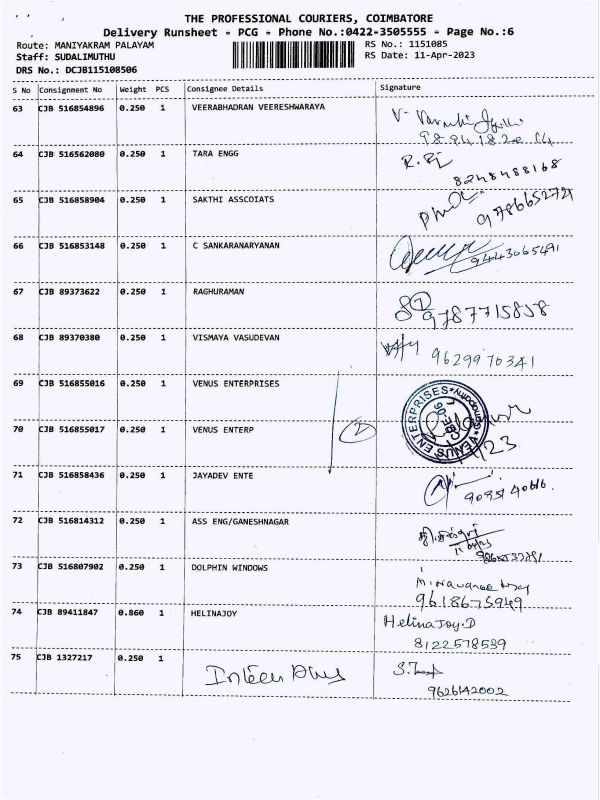 THE PROFESSIONAL COURIERS, COIMBATORE
Delivery Runsheet - PCG - Phone No.:0422-3505555 - Page No.:6
Route: MANIYAKRAM PALAYAM RS No.: 1151085
Staff: SUDALIMUTHU RS Date: 11-Apr-2023
DRS No.: DCJB115108506
S No Consignment No Weight PCS Consignee Details Signature
63 CJB 516854896 0.250 1 VEERABHADRAN VEERESHWARAYA
64 CJB 516562080 0.250 1 TARA ENGG
8248488168
65 CJB 516858904 0.250 1 SAKTHI ASSCOIATS
66 CJB 516853148 0.250 1 C SANKARANARYANAN
9443065491
67 CJB 89373622 0.250 1 RAGHURAMAN
9787715858
68 CJB 89370380 0.250 1 VISMAYA VASUDEVAN
9629970341
69 CJB 516855016 0.250 1 VENUS ENTERPRISES
VENUS ENTERPRISES
70 CJB 516855017 0.250 1 VENUS ENTERP
71 CJB 516858436 0.250 1 JAYADEV ENTE
72 CJB 516814312 0.250 1 ASS ENG/GANESHNAGAR
73 CJB 516807902 0.250 1 DOLPHIN WINDOWS
9618675949
74 CJB 89411847 0.860 1 HELINAJOY Helina Joy.D
8122578539
75 CJB 1327217 0.250 1
9626142002